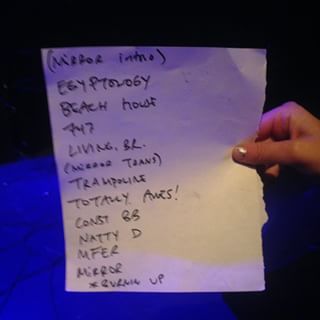 (MIRROR INTRO)
EGYPTOLOGY
BEACH HOUSE
747
LIVING. BR.
(MIRROR TRANS)
TRAMPOLINE
TOTALLY AWES!
CONST BB
NATTY D
MFER
MIRROR
*BURNIN UP